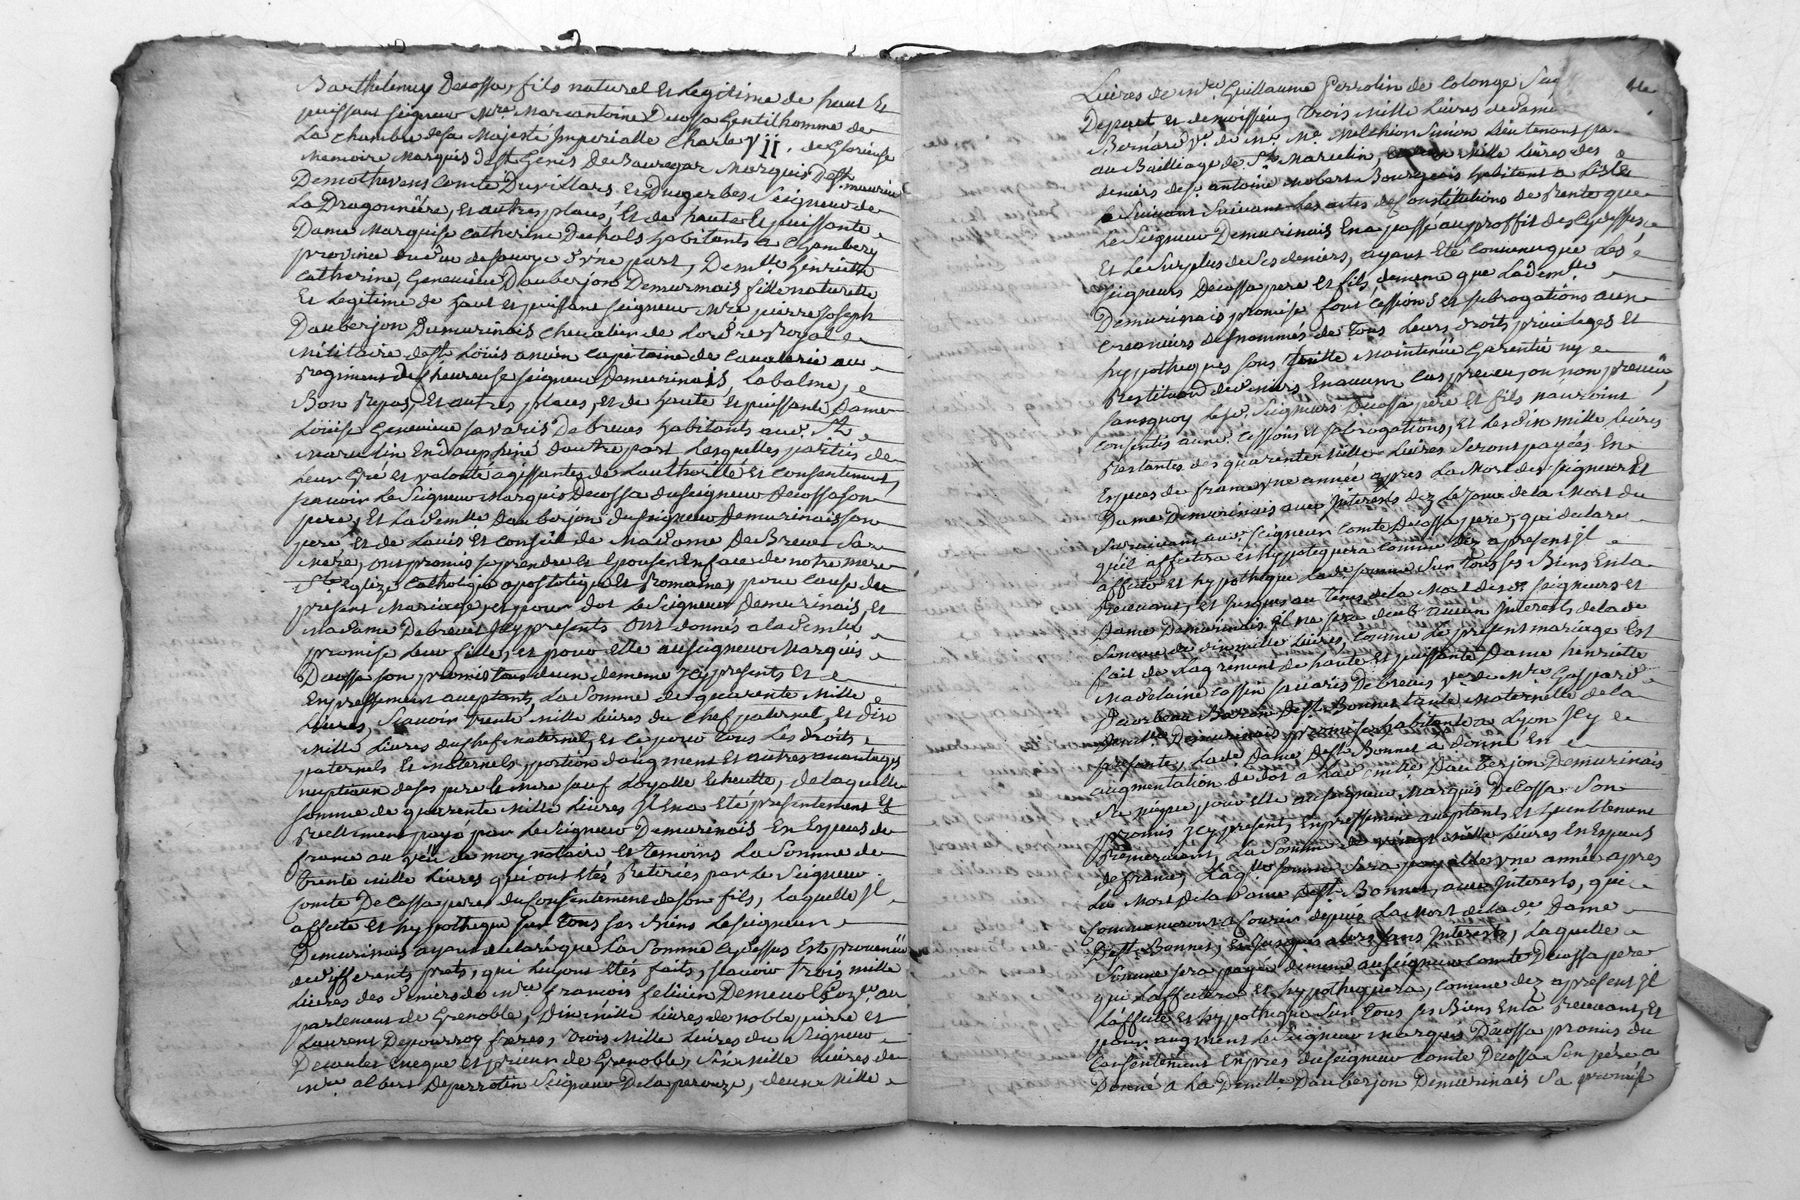 Barthelemy Decossa, fils naturel Et Legitime de haut Et
puissant seigneur Mre Marcantoine Decossa Gentilhomme de
La Chambre de sa Majesté Imperialle Charle VII. de Glorieuse
Memoire Marquis de st Genis de Beauregar Marquis De st maurice
Demothevens Comte Duvillars Et Dugerbes Seigneur de
La Dragonniere, Et autres places, Et de haute Et puissante
Dame Marquise Catherine habitants a Chambery
province du duc de savoye d'vne part, Demlle henriette
Catherine, Genevieve Dauberjon Demurinais fille naturelle
Et Legitime de haut et puissant seigneur Mre pierre Joseph
Dauberjon Demurinais Chevalier de Lordre Royal
Militaire de st Loüis ancien Capitaine de Cavalerie au
Regiment seigneur Demurinais, Labalme,
Bon Repos, Et autres places, Et de haute Et puissante Dame
Loüise Genevieve savaris Debreves habitants aud. St
Marcelin En dauphiné dautre part Lesquelles parties de
Leur Gré et volonté agissantes de Lauthorité Et Consentement,
scavoir Le Seigneur Marquis Decossa du seigneur Decossa son
pere, Et La demlle Dauberjon du seigneur Demurinais son
pere Et de Lavis Et Conseil de Madame De Breves Sa
Mere, ont promis se prendre Et Epouser En face de notre mere
Ste Eglize Catholique apostolique Et Romaine, pour Cause du
present Mariage, et pour dot Le Seigneur Demurinais, Et
Madame Debreves Icy presents ont donnés a la demlle
promise Leur fille, et pour Elle au seigneur Marquis
Decossa son promis tous deux demême Icy presents Et
Expressement aceptants, La Somme de quarente Mille
Livres, Scavoir trente Mille Livres du Chef paternel, et dix
Mille Livres du Chef maternel, Et ce pour tous Les droits,
paternels Et Maternels, portion d'augment Et autres avantages
nuptiaux de ses pere Et Mere sauf Loyalle Echeutte, de laquelle
somme de quarente Mille Livres Il En a Eté presentement Et
Reellement payé par Le Seigneur Demurinais En Especes de
france au veü de moy notaire Et temoins La Somme de
trente Mille Livres qui ont Etés Retirées par Le Seigneur
Comte Decossa pere du Consentement de son fils, Laquelle Il
affecte Et hypotheque sur tous ses Biens Le seigneur
Demurinais ayant declaré que La Somme Cy dessus Est provenüe
de differents prets, qui luy ont Etés faits, scavoir trois mille
Livres des deniers de Mre francois felicien au
parlement de Grenoble, Dix mille Livres de noble pierre et
Laurent Depourroy freres, trois Mille Livres du Seigneur
Decaulet Eveque Et prince de Grenoble, Six Mille Livres de
Mre albert Deperrotin Seigneur Delaperouze, deux Mille
Livres de Mre Guillaume Perrotin de Colonge
Dupuet et demoissieu, Trois Mille Livres de dame
Bernard Ve de Mr Me Melchior Simon Lieutenant
au Bailliage de St Marcelin, Mille Livres des
deniers de se antoine Robert Bourgeois habitant a
Suivant Les actes de Constitutions de Rente que
Le Seigneur Demurinais En a passé au proffit des Cydessus
Et Le Surplus de Ses deniers, ayant Eté Convenu que Les
Seigneurs Decossa pere Et fils, demême que Lademlle
Demurinais promise font Cessions et subrogations aux
Creanciers de tous Leurs droits privileges Et
hypotheques sans Maintenüe Garentie ny
Restitution de deniers En aucun Cas preveu, ou non preveü,
sansquoy Les d. Seigneurs Decossa pere Et fils n'auroint
Consentis auxd. Cessions et subrogations, Et Les dix mille Livres
Restantes des quarente mille Livres Seront payées En
Especes de france vne année apres La Mort des seigneur Et
Dame Demurinais avec Interests dez Le Jour de la Mort du
Survivant aud. Seigneur Comte Decossa pere, qui declare
qu'il affectera et hypotequera Comme dez apresent Il
affecte Et hypotheque Lad. Somme Sur tous ses Biens En la
Recevant, Et Jusques au tems de la Mort desd. Seigneurs et
Dame Demurinais Il ne sera deub aucun Interests de lad.
Somme de dix mille Livres, Comme Le present mariage Est
fait de Lagrement de haute Et puissante Dame henriette
Madelaine Cassin savaris Debreves Ve de Mre Gaspard
Baron De st Bonnet tante Maternelle de la
demlle Demurinais promise habitante a Lyon Icy
presente, Lad. Dame De st Bonnet a donné En
augmentation de dot a Lad. demlle Dauberjon Demurinais
Sa Niepce, pour Elle au seigneur Marquis Decossa Son
promis Icy present, Expressement aceptant Et humblement
Remerciant, La Somme de vingt mille Livres En Especes
de france, Laqlle Somme Sera payable vne année apres
La Mort de la Dame De st Bonnet, avec Interests, qui
Commenceront a Courir depuis La Mort de la d. Dame
De st Bonnet, Et Jusques alors sans Interests, Laquelle
Somme sera payée demême au seigneur Comte Decossa pere
qui Laffectera Et hypothequera, Comme dez apresent Il
Laffecte Et hypotheque Sur tous ses Biens En la Recevant, Et
pour augment Le Seigneur Marquis Decossa promis du
Consentement Exprés du seigneur Comte Decossa Son pere a
Donné a La Demlle Dauberjon Demurinais Sa promise